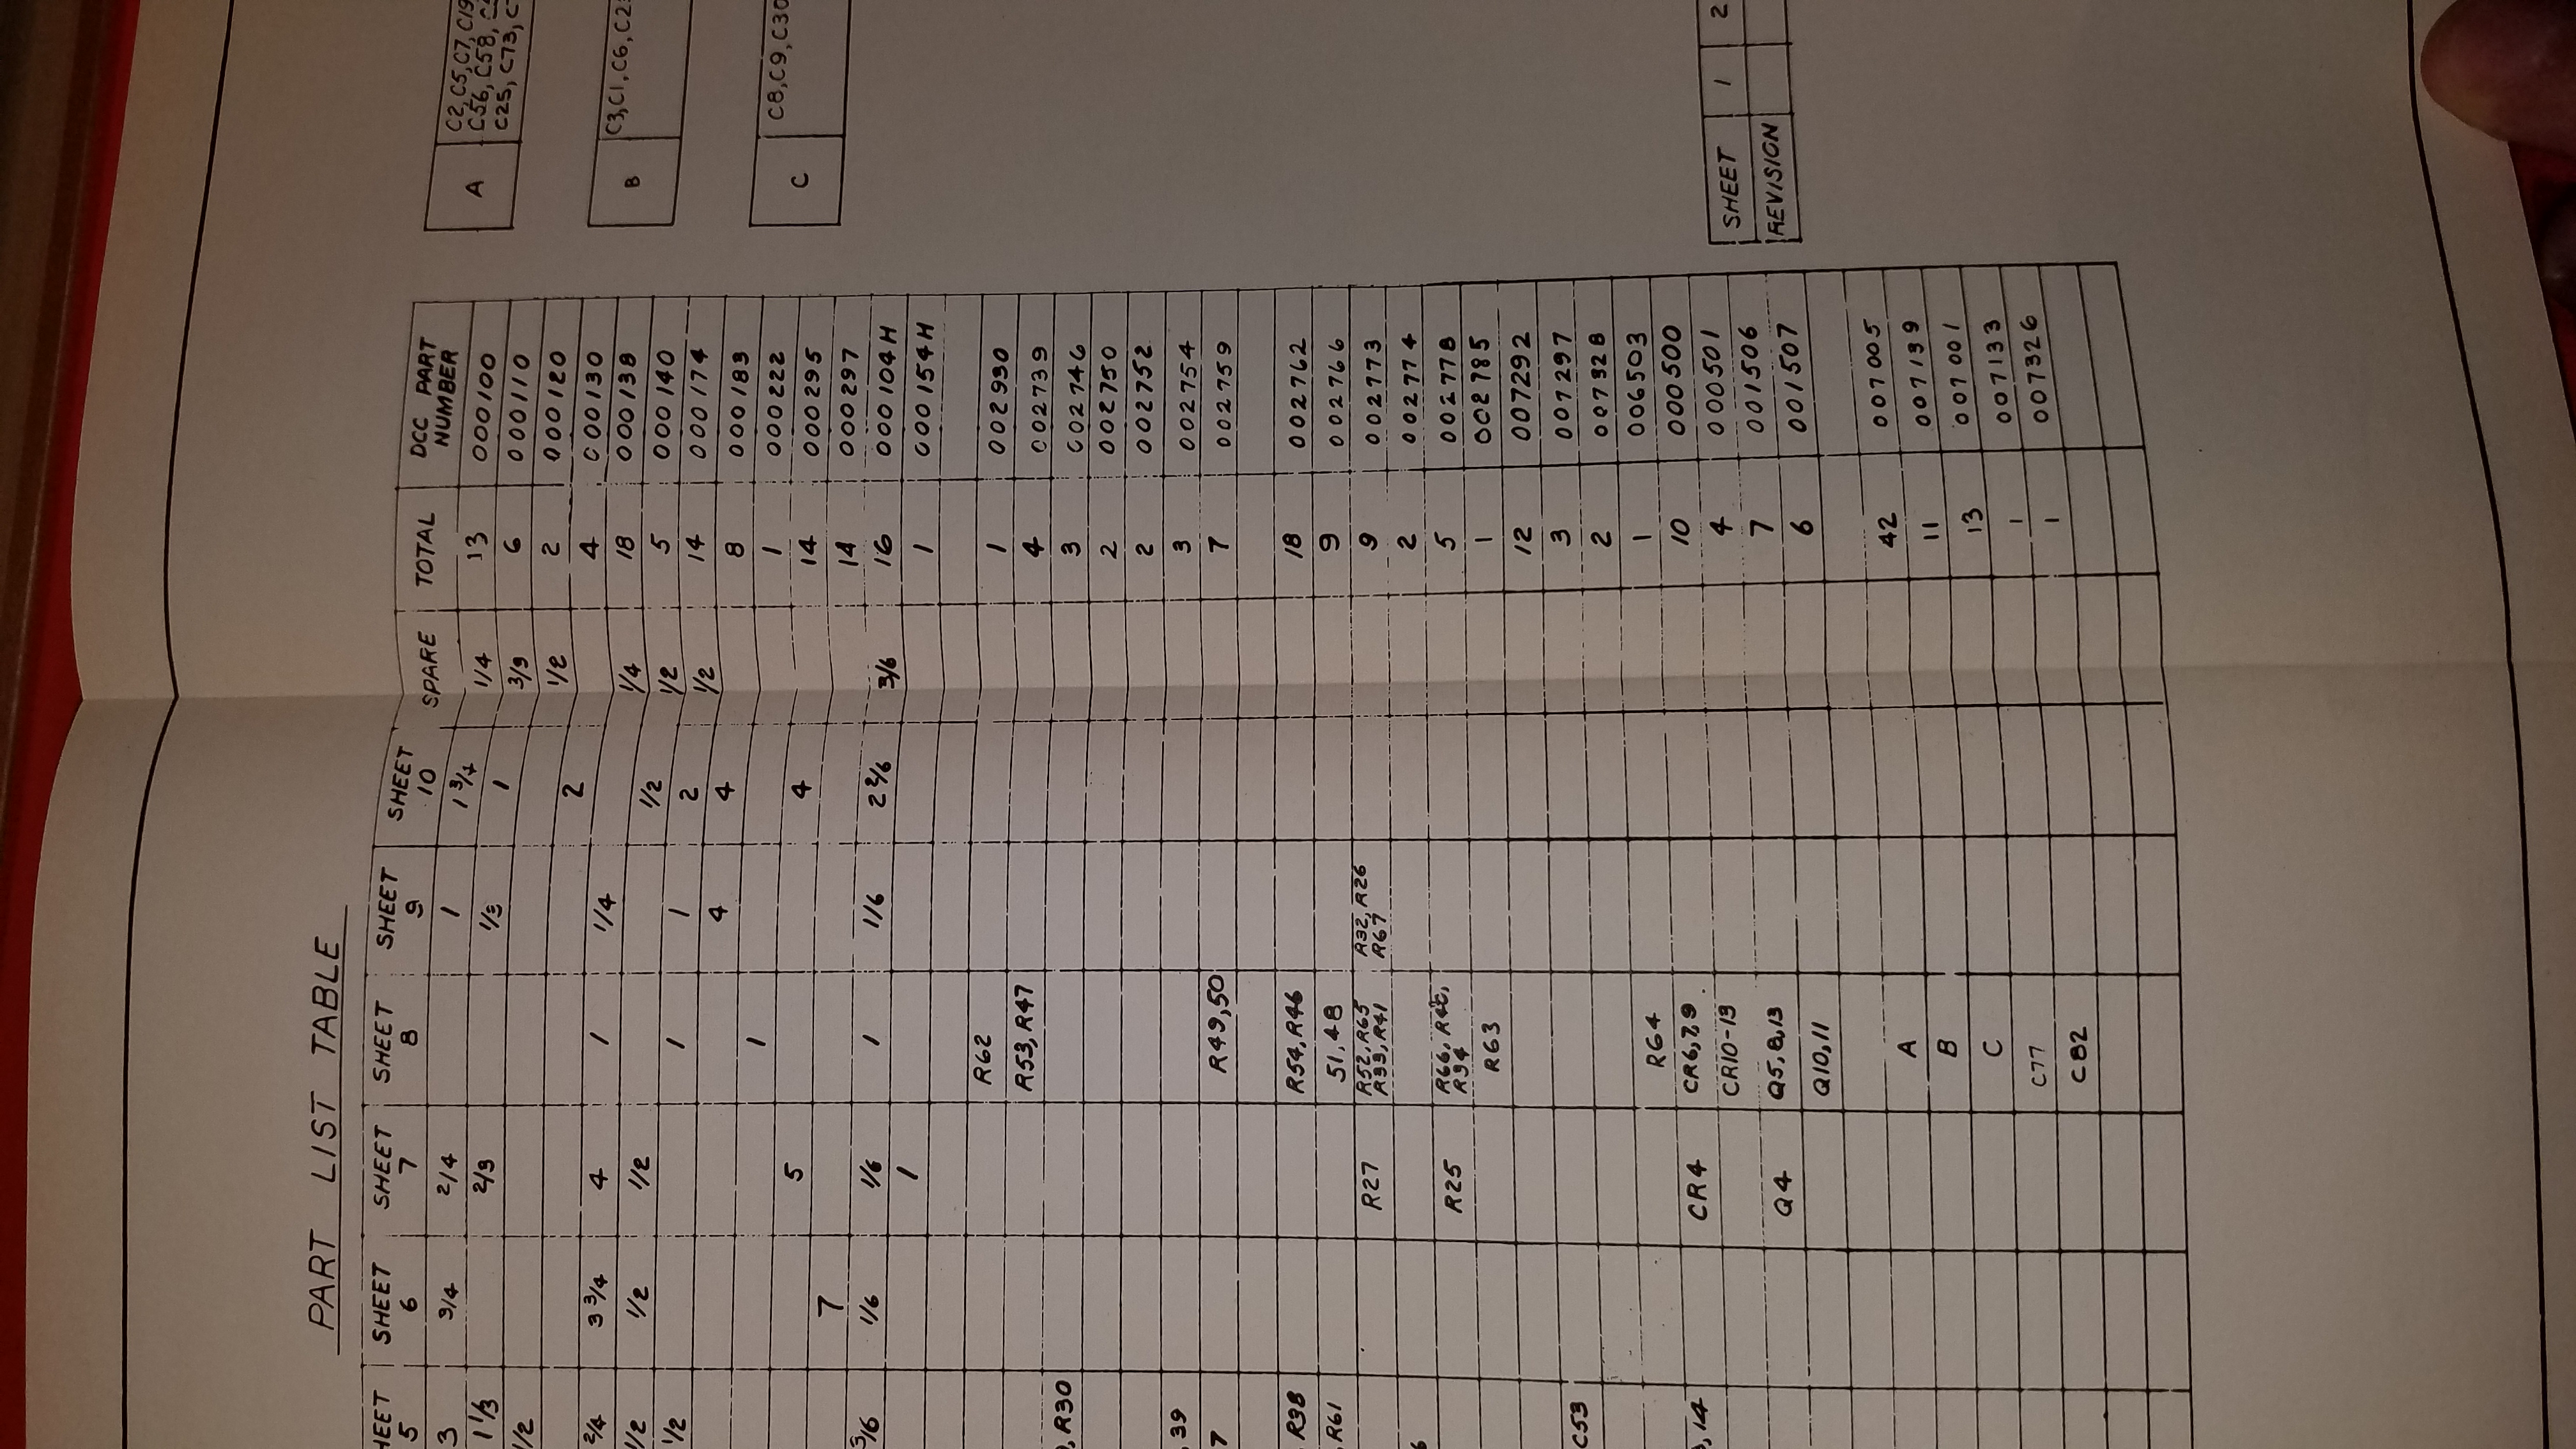 PART LIST TABLE
HEET 5 SHEET 6 SHEET 7 SHEET 8 SHEET 9 SHEET 10 SPARE TOTAL DCC PART NUMBER
3 3/4 2/4 1 1 3/4 1/4 13 000100
1 1/3 2/3 1/3 1 3/3 6 000110
1/2 1/2 2 000120
2 4 000130
2/4 3 3/4 4 1 1/4 1/4 18 000138
1/2 1/2 1/2 1/2 1/2 5 000140
1/2 1 1 2 1/2 14 000174
4 4 8 000183
1 1 000222
5 4 14 000295
7 14 000297
3/6 1/6 1/6 1 1/6 2 2/6 3/6 16 000104H
1 1 000154H
R62 1 002930
R53, R47 4 002739
, R30 3 002746
2 002750
2 002752
, 39 3 002754
7 R49,50 7 002759
R38 R54, R46 18 002762
, R61 51,48 9 002766
R27 R52, R65 R33, R41 R32, R26 R67 9 002773
6 2 002774
R25 R66, R34 5 002778
R63 1 002785
12 007292
C53 3 007297
2 007328
R64 1 006503
, 14 CR4 CR6,7,9 10 000500
CR10-13 4 000501
Q4 Q5,8,13 7 001506
Q10,11 6 001507
A 42 007005
B 11 007139
C 13 007001
C77 1 007133
C82 1 007326
A C2, C5, C7, C19
C56, C58,
C25, C73,
B C3, C1, C6, C2
C C8, C9, C30
SHEET 1 2
REVISION